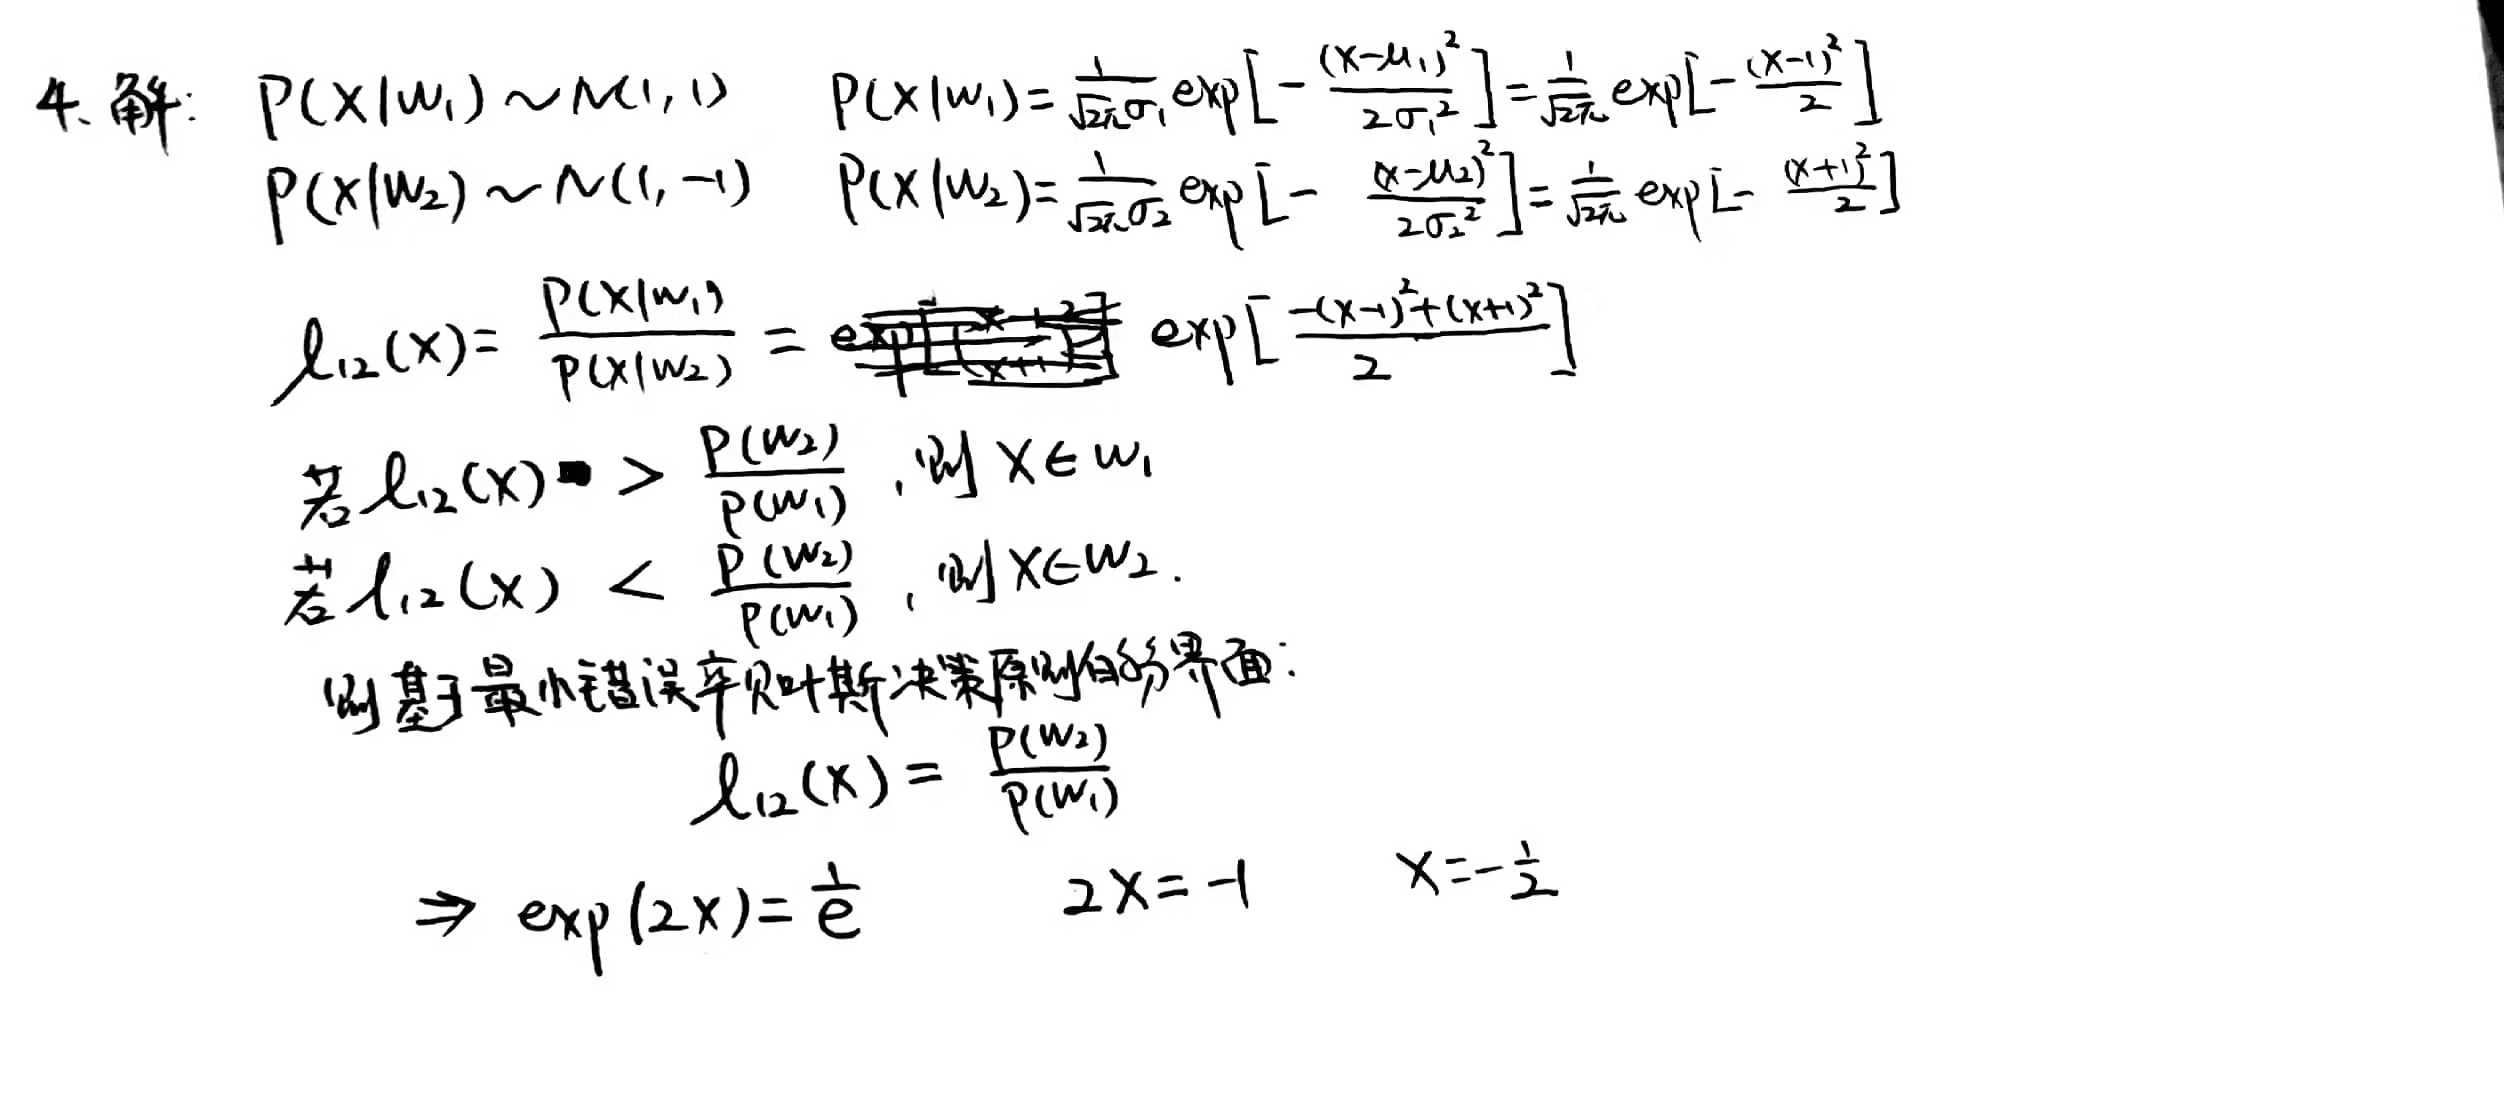 4、解: P(X|W₁) ~ N(1, 1) P(X|W₁) = \frac{1}{\sqrt{2π}σ₁} exp[-\frac{(X-μ₁)²}{2σ₁²}] = \frac{1}{\sqrt{2π}} exp[-\frac{(X-1)²}{2}]
P(X|W₂) ~ N(1, -1) P(X|W₂) = \frac{1}{\sqrt{2π}σ₂} exp[-\frac{(X-μ₂)²}{2σ₂²}] = \frac{1}{\sqrt{2π}} exp[-\frac{(X+1)²}{2}]
l₁₂(X) = \frac{P(X|W₁)}{P(X|W₂)} = exp[\frac{-(X-1)²+(X+1)²}{2}]
若 l₁₂(X) > \frac{P(W₂)}{P(W₁)} , 则 X∈W₁
若 l₁₂(X) < \frac{P(W₂)}{P(W₁)} , 则 X∈W₂.
则基于最小错误率贝叶斯决策原则的分界面:
l₁₂(X) = \frac{P(W₂)}{P(W₁)}
⇒ exp(2X) = \frac{1}{e} 2X = -1 X = -\frac{1}{2}